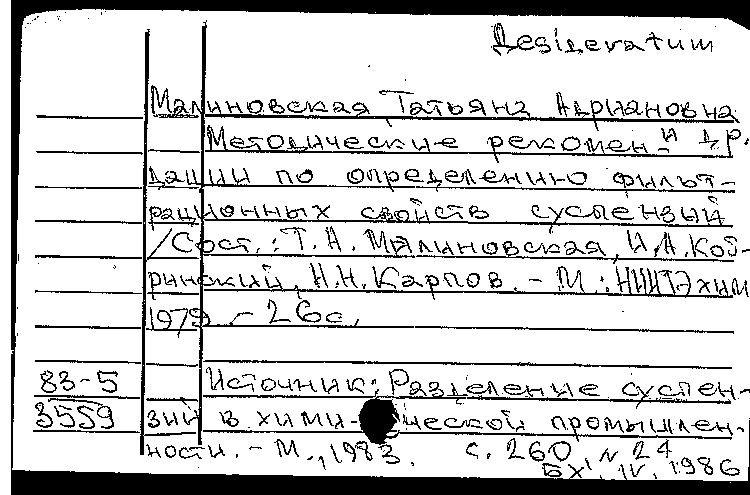 Desideratum
Малиновская, Татьяна Адриановна
Методические рекомен- и др.
дации по определению фильт-
рационных свойств суспензий
/Сост.: Т.А. Малиновская, И.А. Кой-
ринский, Н.Н. Карпов. - М.: НИИТЭхим
1979. - 26с.
83-5 Источник: Разделение суспен-
3559 зий в хими- ческой промышлен-
ности. - М., 1983. с. 260, N 24
БХ, IV, 1986